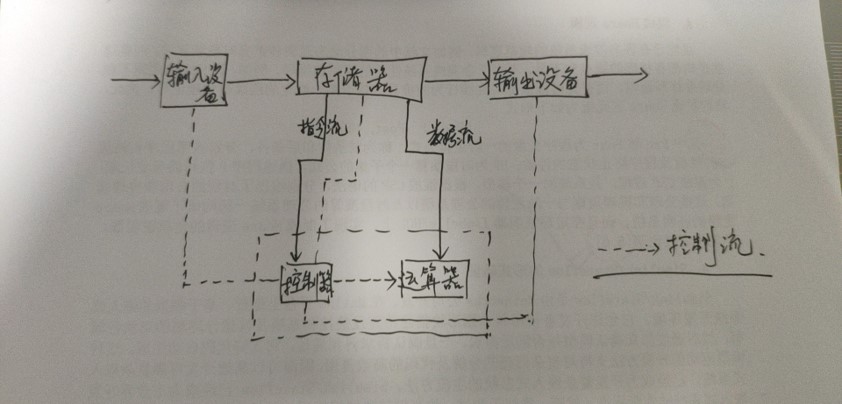 输入设
备
存储器
输出设备
指令流
数据流
控制器
运算器
控制流.